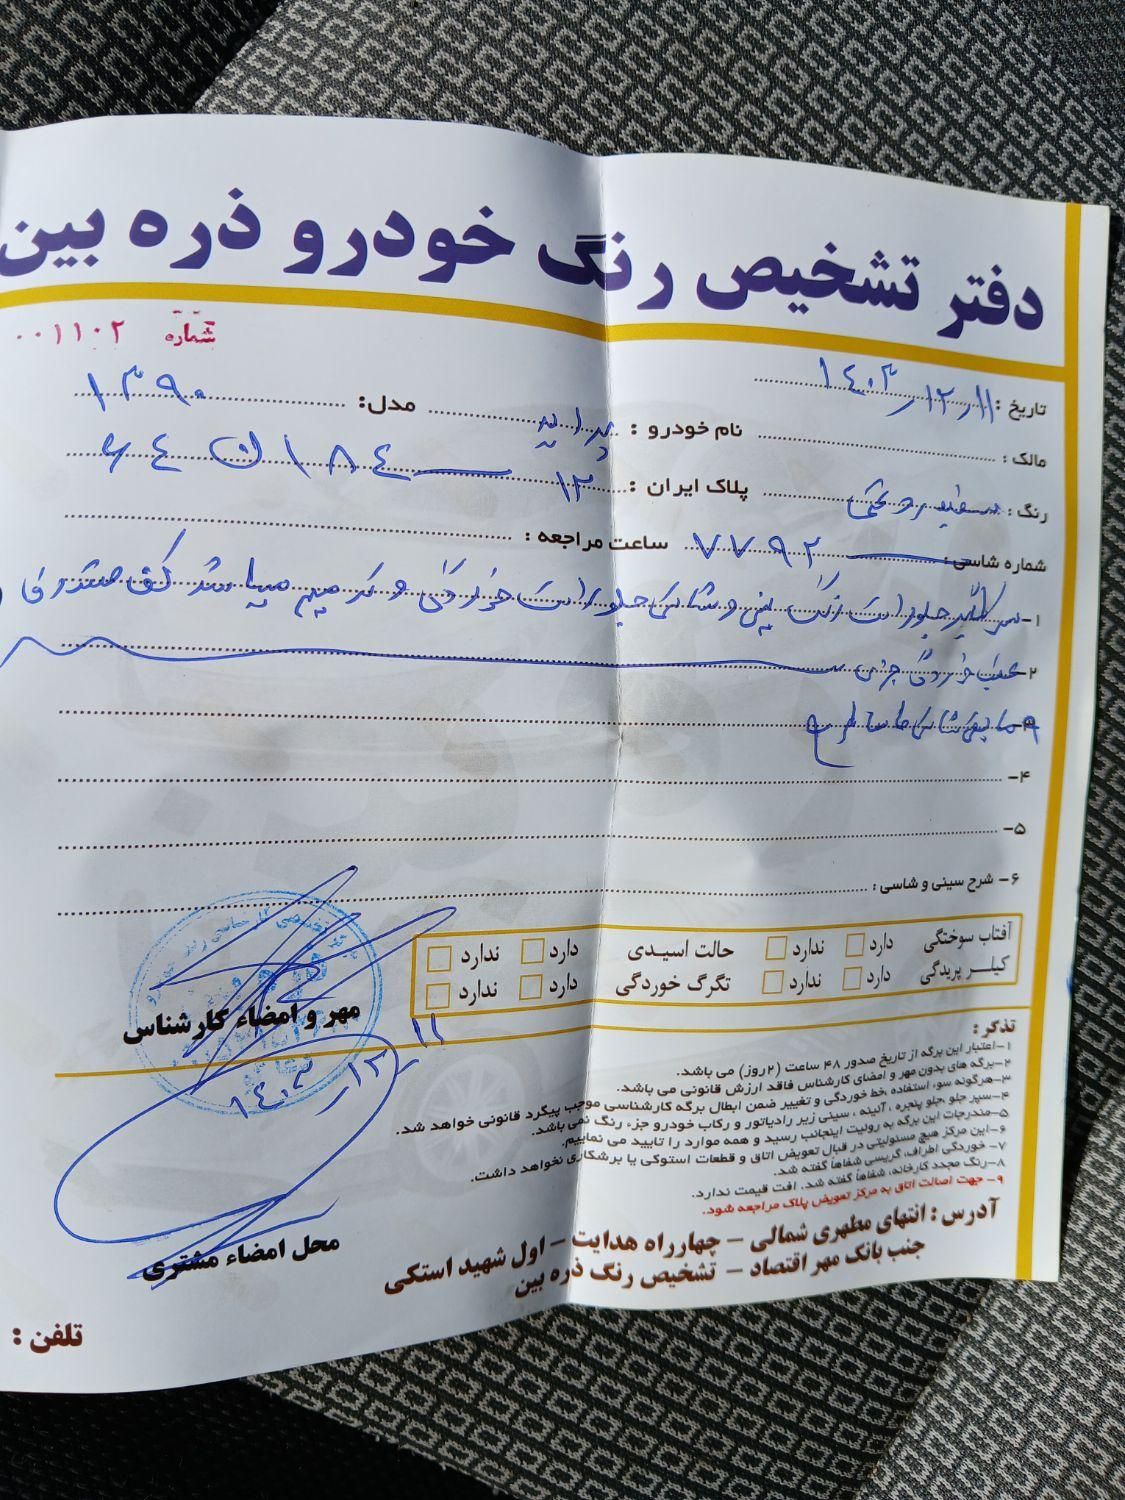 دفتر تشخیص رنگ خودرو ذره بین
شماره ۰۰۱۱۰۲
تاریخ : ۱۴۰۳/۱۲/۱۱
مالک : نام خودرو : پراید مدل: ۱۳۹۰
رنگ : سفید روغنی پلاک ایران : ۱۲ ۱۸۴ ن ۶۴
شماره شاسی : ۷۷۹۲ ساعت مراجعه :
۱- سرگلگیر جلو راست رنگ پنی و شاسی جلو راست خوردگی و ترمیم میباشد کف صندوق
۲- عقب خوردگی جزی
۳- و مابقی شاسی ها سالم
۴-
۵-
۶- شرح سینی و شاسی :
آفتاب سوختگی دارد ندارد حالت اسیدی دارد ندارد
کیلر پریدگی دارد ندارد تگرگ خوردگی دارد ندارد
مهر و امضاء کارشناس
۱۴۰۳/۱۲/۱۱
تذکر :
۱-اعتبار این برگه از تاریخ صدور ۴۸ ساعت (۲روز) می باشد.
۲-برگه های بدون مهر و امضای کارشناس فاقد ارزش قانونی می باشد.
۳-هرگونه سوء استفاده ،خط خوردگی و تغییر ضمن ابطال برگه کارشناسی موجب پیگرد قانونی خواهد شد.
۴-سپر جلو ،جلو پنجره ، آئینه ، سینی زیر رادیاتور و رکاب خودرو جزء رنگ نمی باشد.
۵-مندرجات این برگه به رولیت اینجانب رسید و همه موارد را تایید می نماییم.
۶-این مرکز هیچ مسئولیتی در قبال تعویض اتاق و قطعات استوکی یا برشکاری نخواهد داشت.
۷- خوردگی اطراف، گریسی شفاهاً گفته شد.
۸-رنگ مجدد کارخانه، شفاهاً گفته شد. افت قیمت ندارد.
۹- جهت اصالت اتاق به مرکز تعویض پلاک مراجعه شود.
آدرس : انتهای مطهری شمالی – چهارراه هدایت – اول شهید استکی
جنب بانک مهر اقتصاد – تشخیص رنگ ذره بین
محل امضاء مشتری
تلفن :